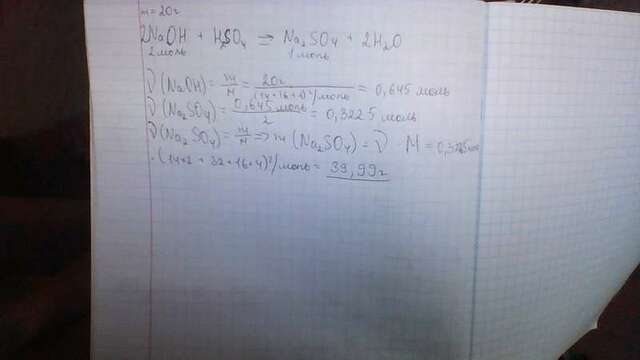 m = 20г
2NaOH + H2SO4 = Na2SO4 + 2H2O
2 моль 1 моль
ν(NaOH) = m/M = 20г/(14+16+1)г/моль = 0,645 моль
ν(Na2SO4) = 0,645 моль/2 = 0,3225 моль
ν(Na2SO4) = m/M => m(Na2SO4) = ν · M = 0,3225 моль
· (14·2 + 32 + 16·4)г/моль = 39,99г